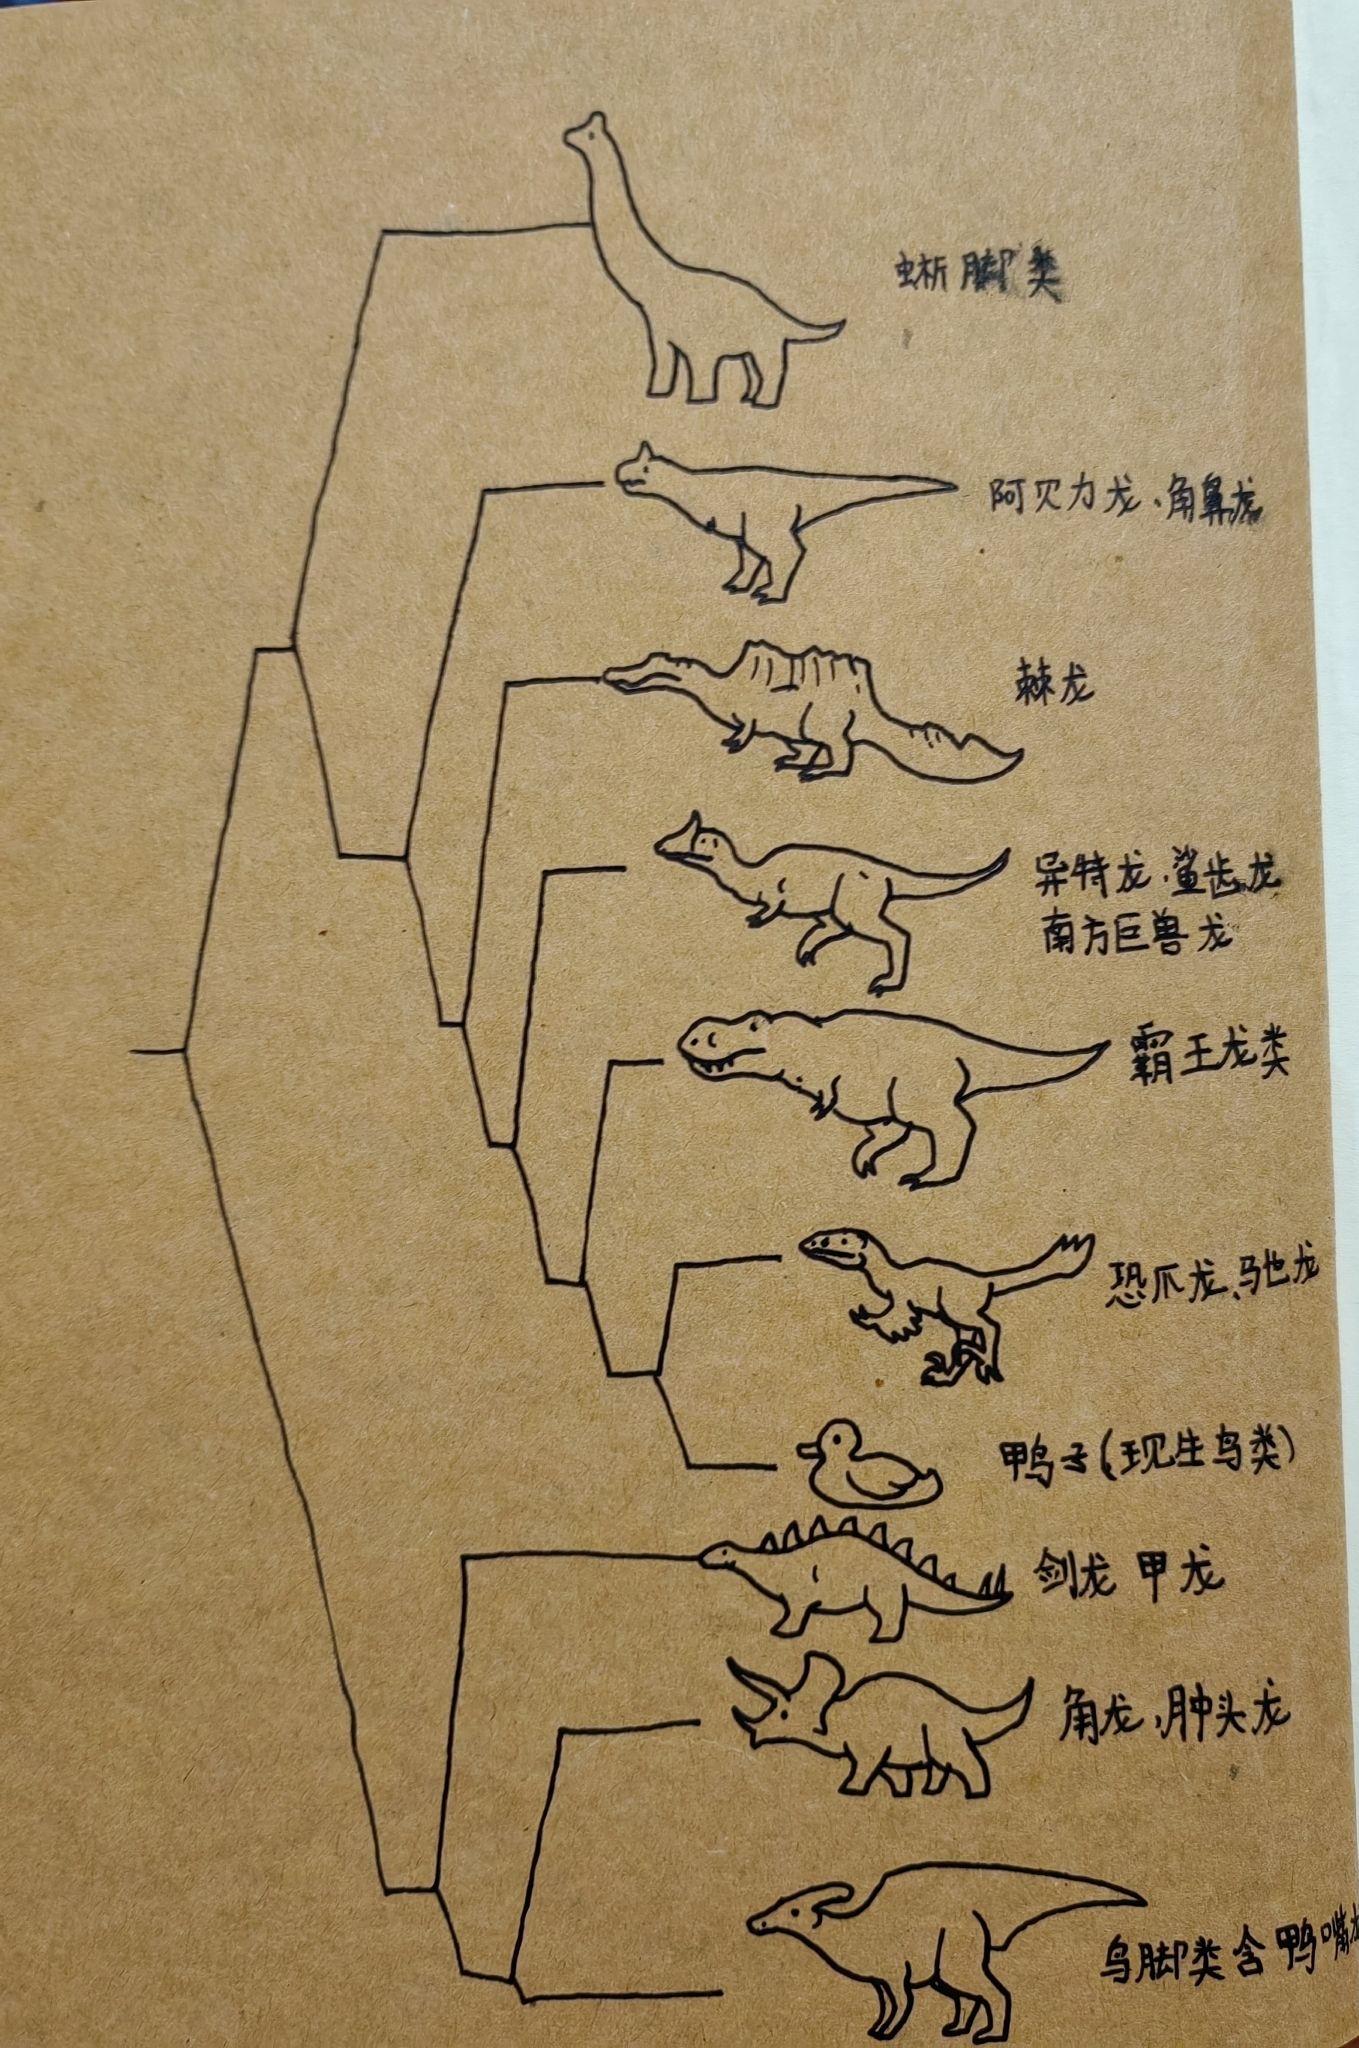 蜥脚类
阿贝力龙、角鼻龙
棘龙
异特龙、鲨齿龙
南方巨兽龙
霸王龙类
恐爪龙、驰龙
鸭子(现生鸟类)
剑龙 甲龙
角龙、肿头龙
鸟脚类含鸭嘴龙